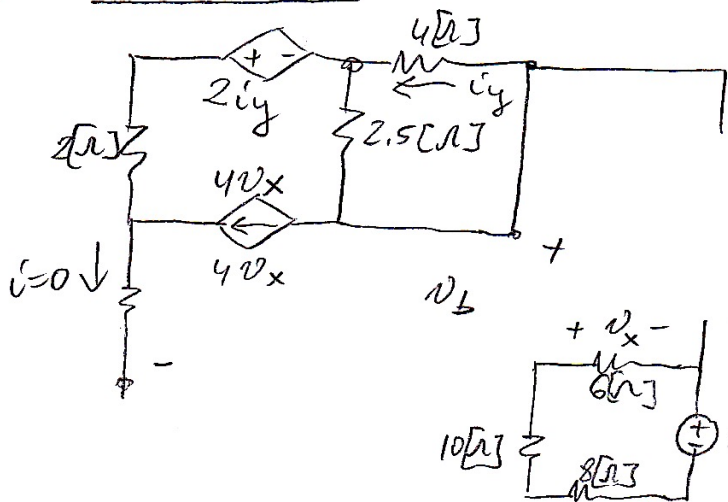 4[Ω]
+ -
2iy
iy
2[Ω]
2.5[Ω]
4vx
4vx
i=0
+
vb
-
+ vx -
6[Ω]
10[Ω]
8[Ω]
+
-